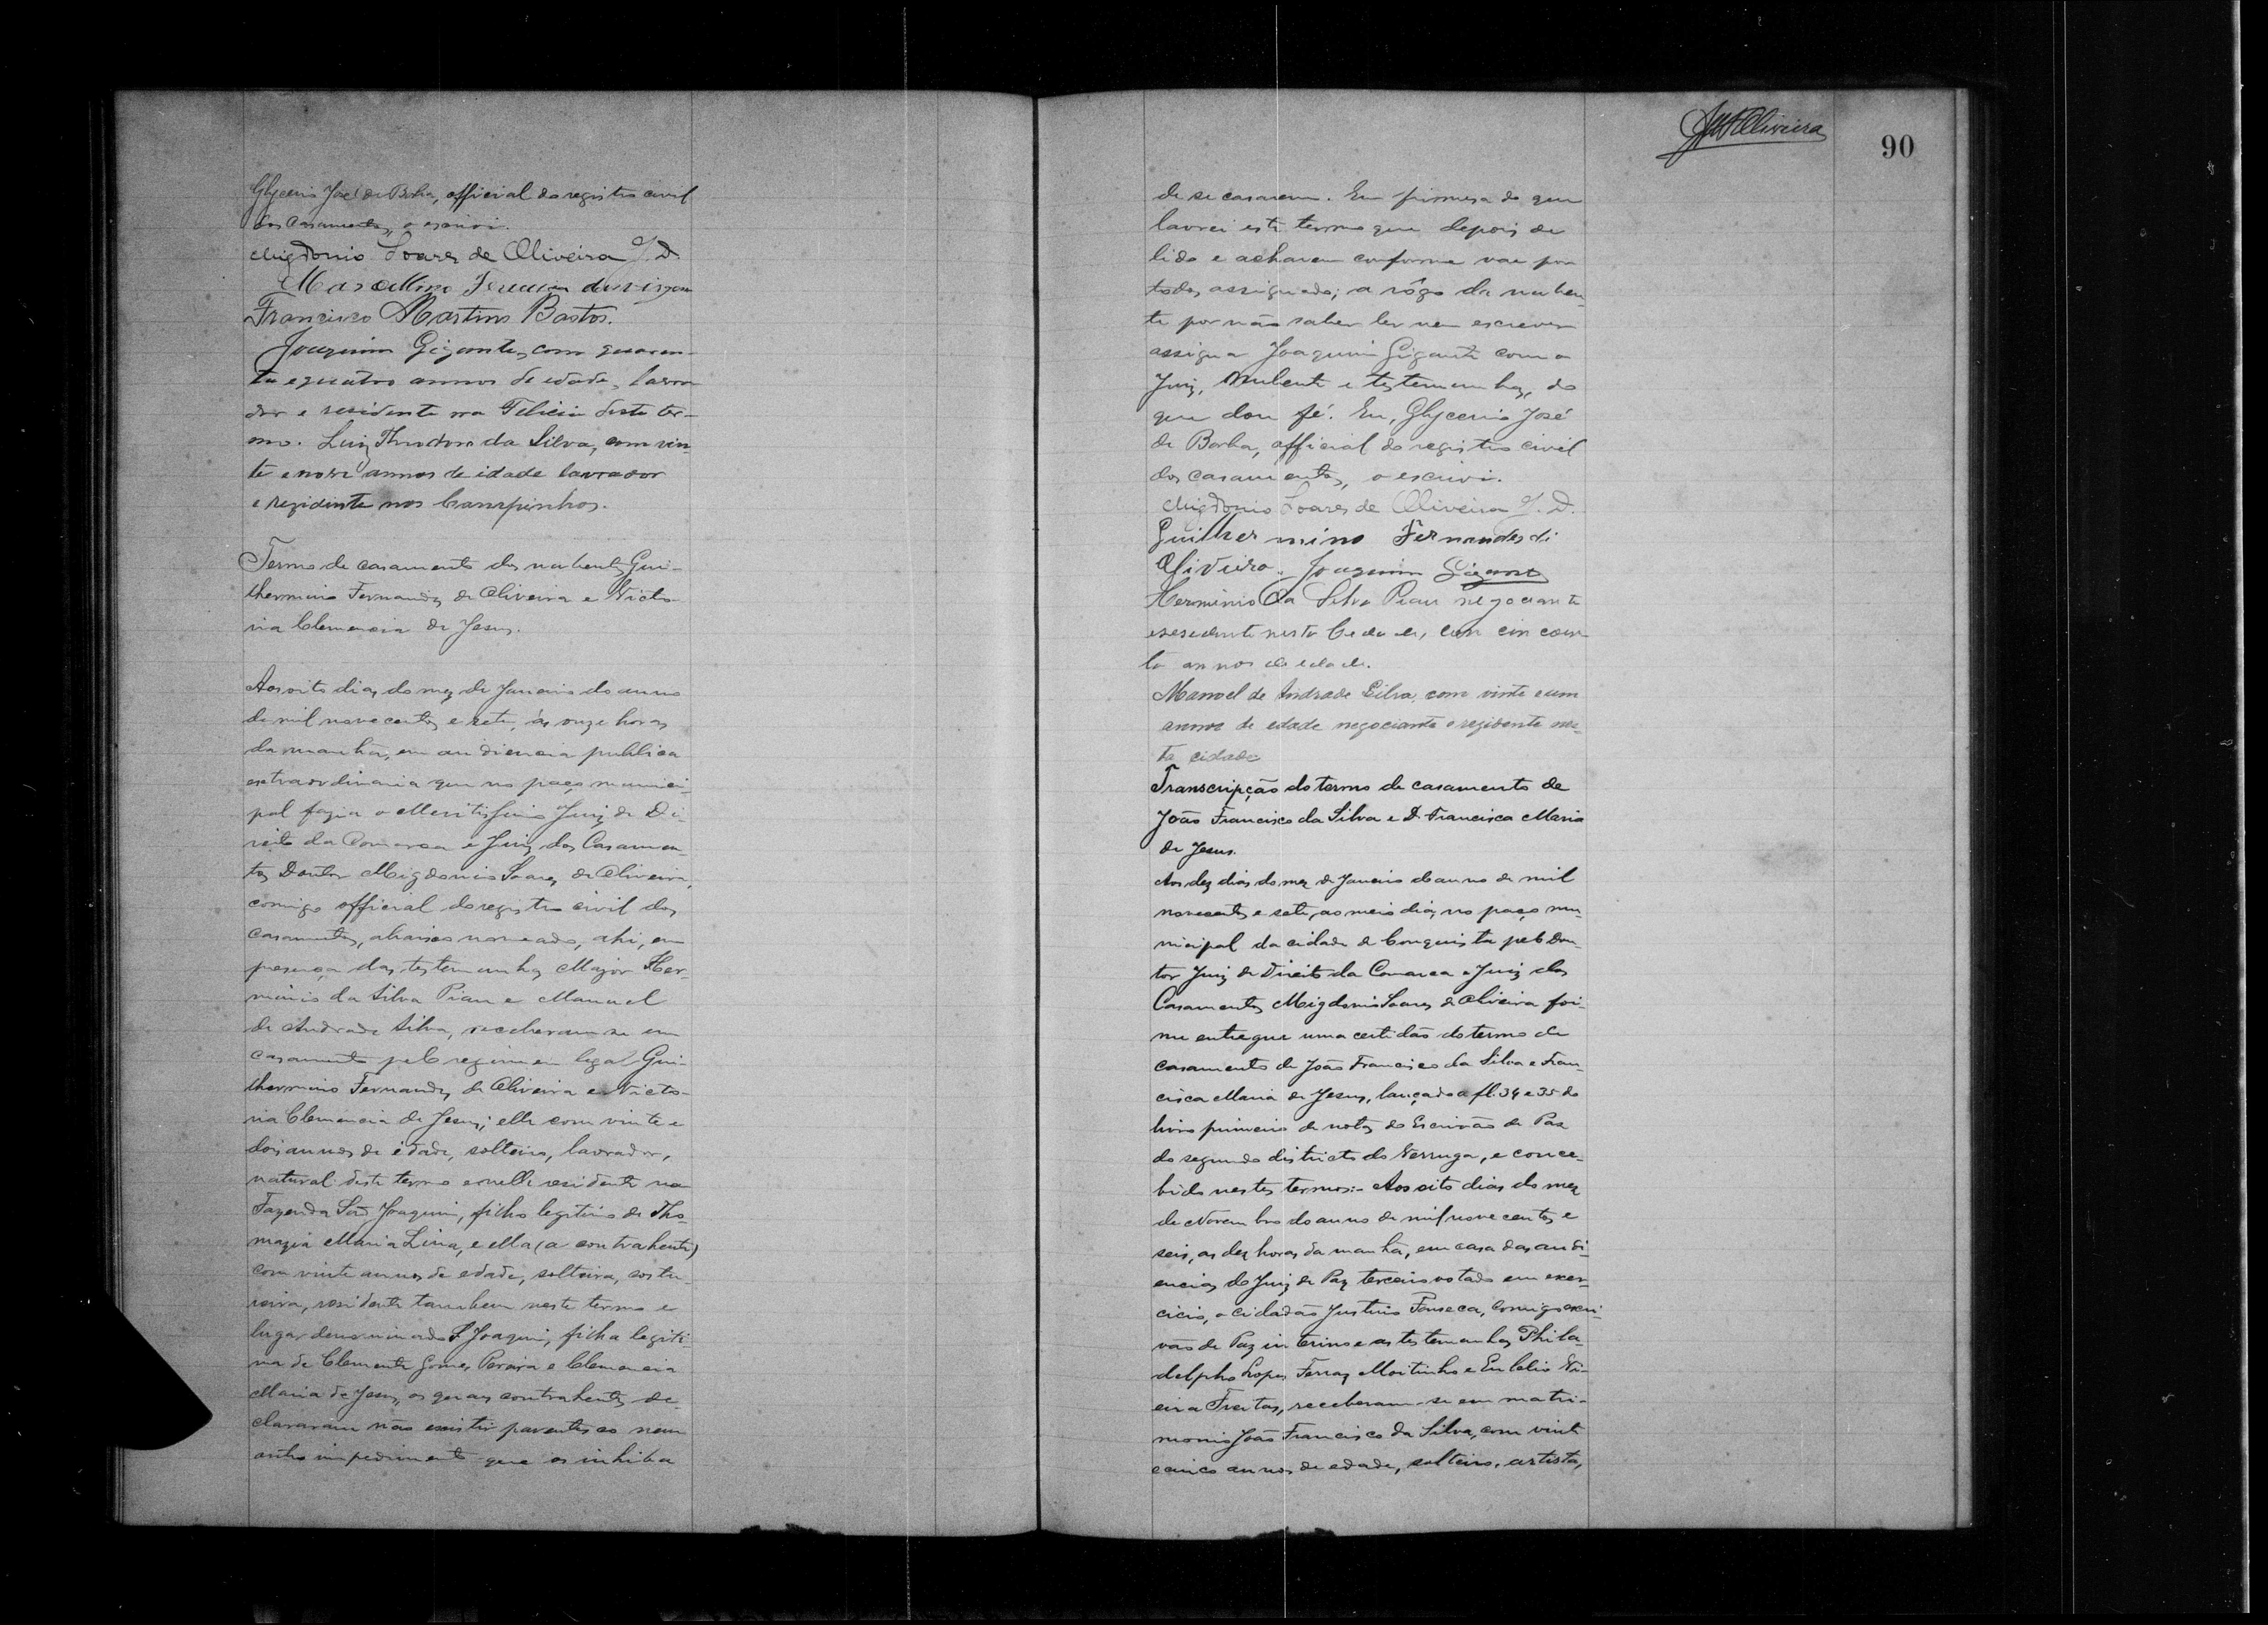 Glycerio José de Borba, official do registro civil
dos casamentos, o escrivi.
Migdonio Soares de Oliveira J. D.
Marcellino
Francisco Martins Bastos.
Joaquim Gigante, com quaren-
ta e quatro annos de edade, lavra
dor e residente na Felicia deste ter-
mo. Luiz Theodoro da Silva, com vin
te e nove annos de idade lavrador
e rezidente nos Campinhos.
Termo de casamento dos nubentes Gui-
lhermino Fernandes de Oliveira e Victo-
ria Clemencia de Jesus.
Aos oito dias do mez de Janeiro do anno
de mil nove centos e sete, ás onze horas
da manhã, em audiencia publica
extraordinaria que no paço munici-
pal fazia o Meritissimo Juiz de Di-
reito da Comarca e Juiz dos Casamen-
tos Doutor Migdonio Soares de Oliveira,
comigo official do registro civil dos
casamentos, abaixo nomeado, ahi, em
presença das testemunhas Major Her-
minio da Silva Piau e Manuel
de Andrade Silva, receberam-se em
casamento pelo regimen legal Gui-
lhermino Fernandes de Oliveira e Victo-
ria Clemencia de Jesus; elle com vinte e
dois annos de idade, solteiro, lavrador,
natural deste termo e nelle residente na
Fazenda São Joaquim, filho legitimo de Tho-
mazia Maria Lina, e ella (a contrahente)
com vinte annos de edade, solteira, costu-
reira, residente tambem neste termo e
lugar denominado S. Joaquim, filha legiti-
ma de Clemente Gomes Pereira e Clemencia
Maria de Jesus, os quaes contrahentes de-
clararam não existir parentesco nem
outro impedimento que os inhiba
90
de se casarem. Em firmeza do que
lavrei este termo que depois de
lido e acharem conforme vae por
todos assignado; a rôgo da nuben-
te por não saber ler nem escrever
assigna Joaquim Gigante com o
Juiz, nubente e testemunhas, do
que dou fé. Eu, Glycerio José
de Borba, official do registro civil
dos casamentos, o escrivi.
Migdonio Soares de Oliveira J. D.
Guilhermino Fernandes di
Oliviera. Joaquim Gigante
Herminio da Silva Piau negociante
eresedente nesta Cedade, com cincoen
ta annos de edade.
Manoel de Andrade Silva, com vinte e um
annos de edade negociante e rezidente nes-
ta cidade
Transcripção do termo de casamento de
João Francisco da Silva e D. Francisca Maria
de Jesus.
Aos dez dias do mez de Janeiro do anno de mil
novecentos e sete, ao meio dia, no paço mu-
nicipal da cidade de Conquista pelo Dou-
tor Juiz de Direito da Comarca e Juiz dos
Casamentos Migdonio Soares de Oliveira foi-
me entregue uma certidão do termo de
casamento de João Francisco da Silva e Fran-
cisca Maria de Jesus, lançado a fl. 34 e 35 do
livro primeiro de notas do Escrivão de Paz
do segundo districto do Verruga, e conce-
bido nestes termos:- Aos oito dias do mez
de Novembro do anno de mil nove centos e
seis, as dez horas da manhã, em casa das audi-
encias do Juiz de Paz terceiro votado em exer-
cicio, o cidadão Justino Fonseca, comigo escri-
vão de Paz interino e as testemunhas Phila-
delpho Lopes Ferraz Moitinho e Vi-
eira Freitas, receberam-se em matri-
monio João Francisco da Silva, com vinte
e cinco annos de edade, solteiro, artista,